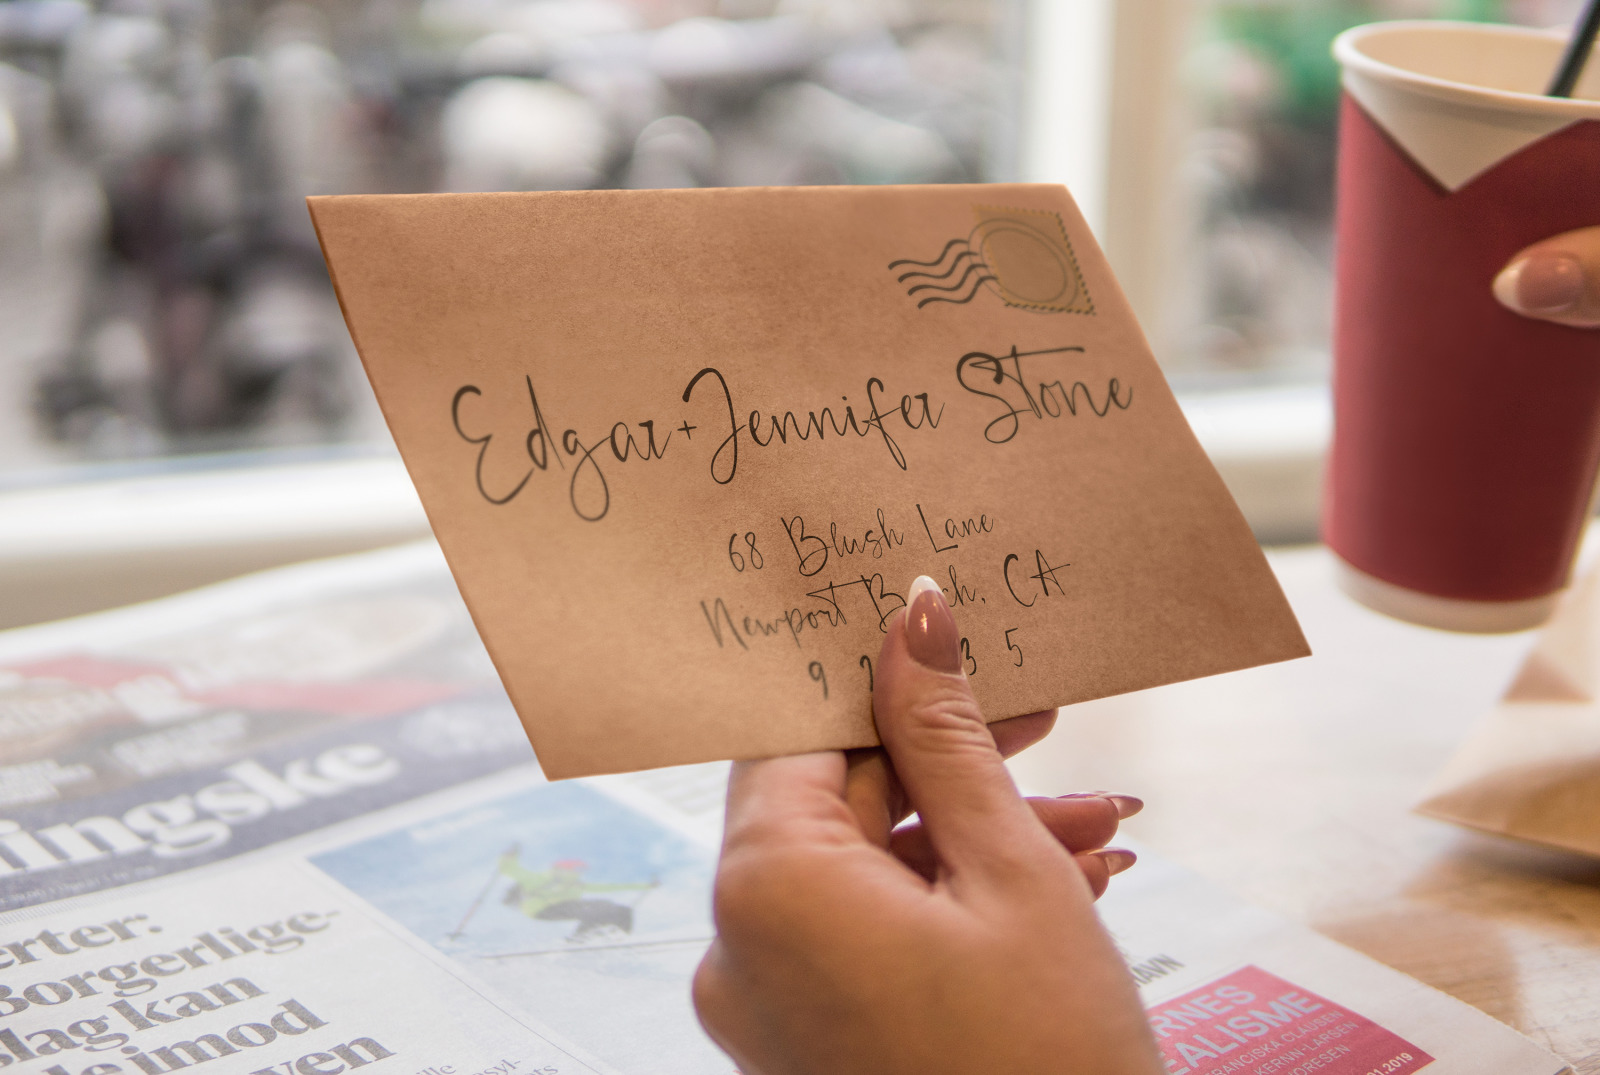 Edgar + Jennifer Stone
68 Blush Lane
Newport B ch, CA
9 2 3 5
ingske
erter:
Borgerlige-
slag kan
imod
ven
HAVN
RNES
ALISME
FRANCISKA CLAUSEN
KERNN-LARSEN
.2019